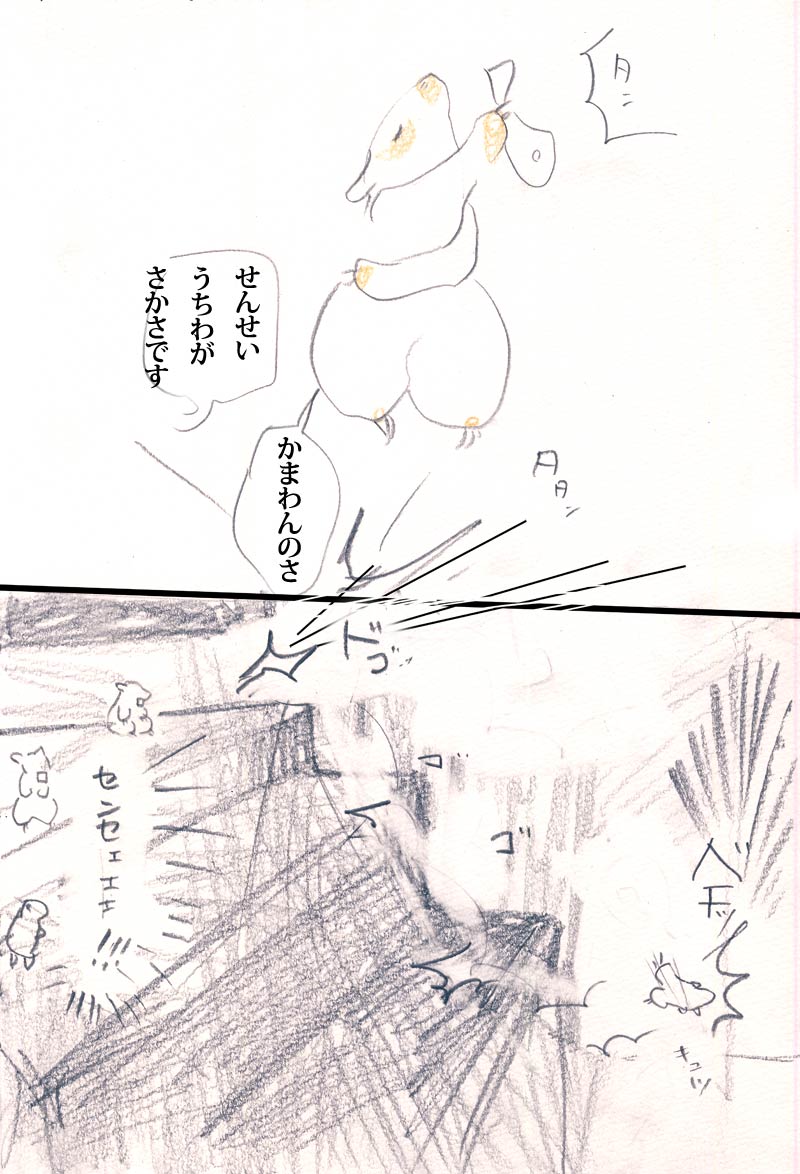 タン
せんせい
うちわが
さかさです
かまわんのさ
タタン
ドゴ
ゴ
ゴ
センセェエエ!!!
ベチッ
キュッ